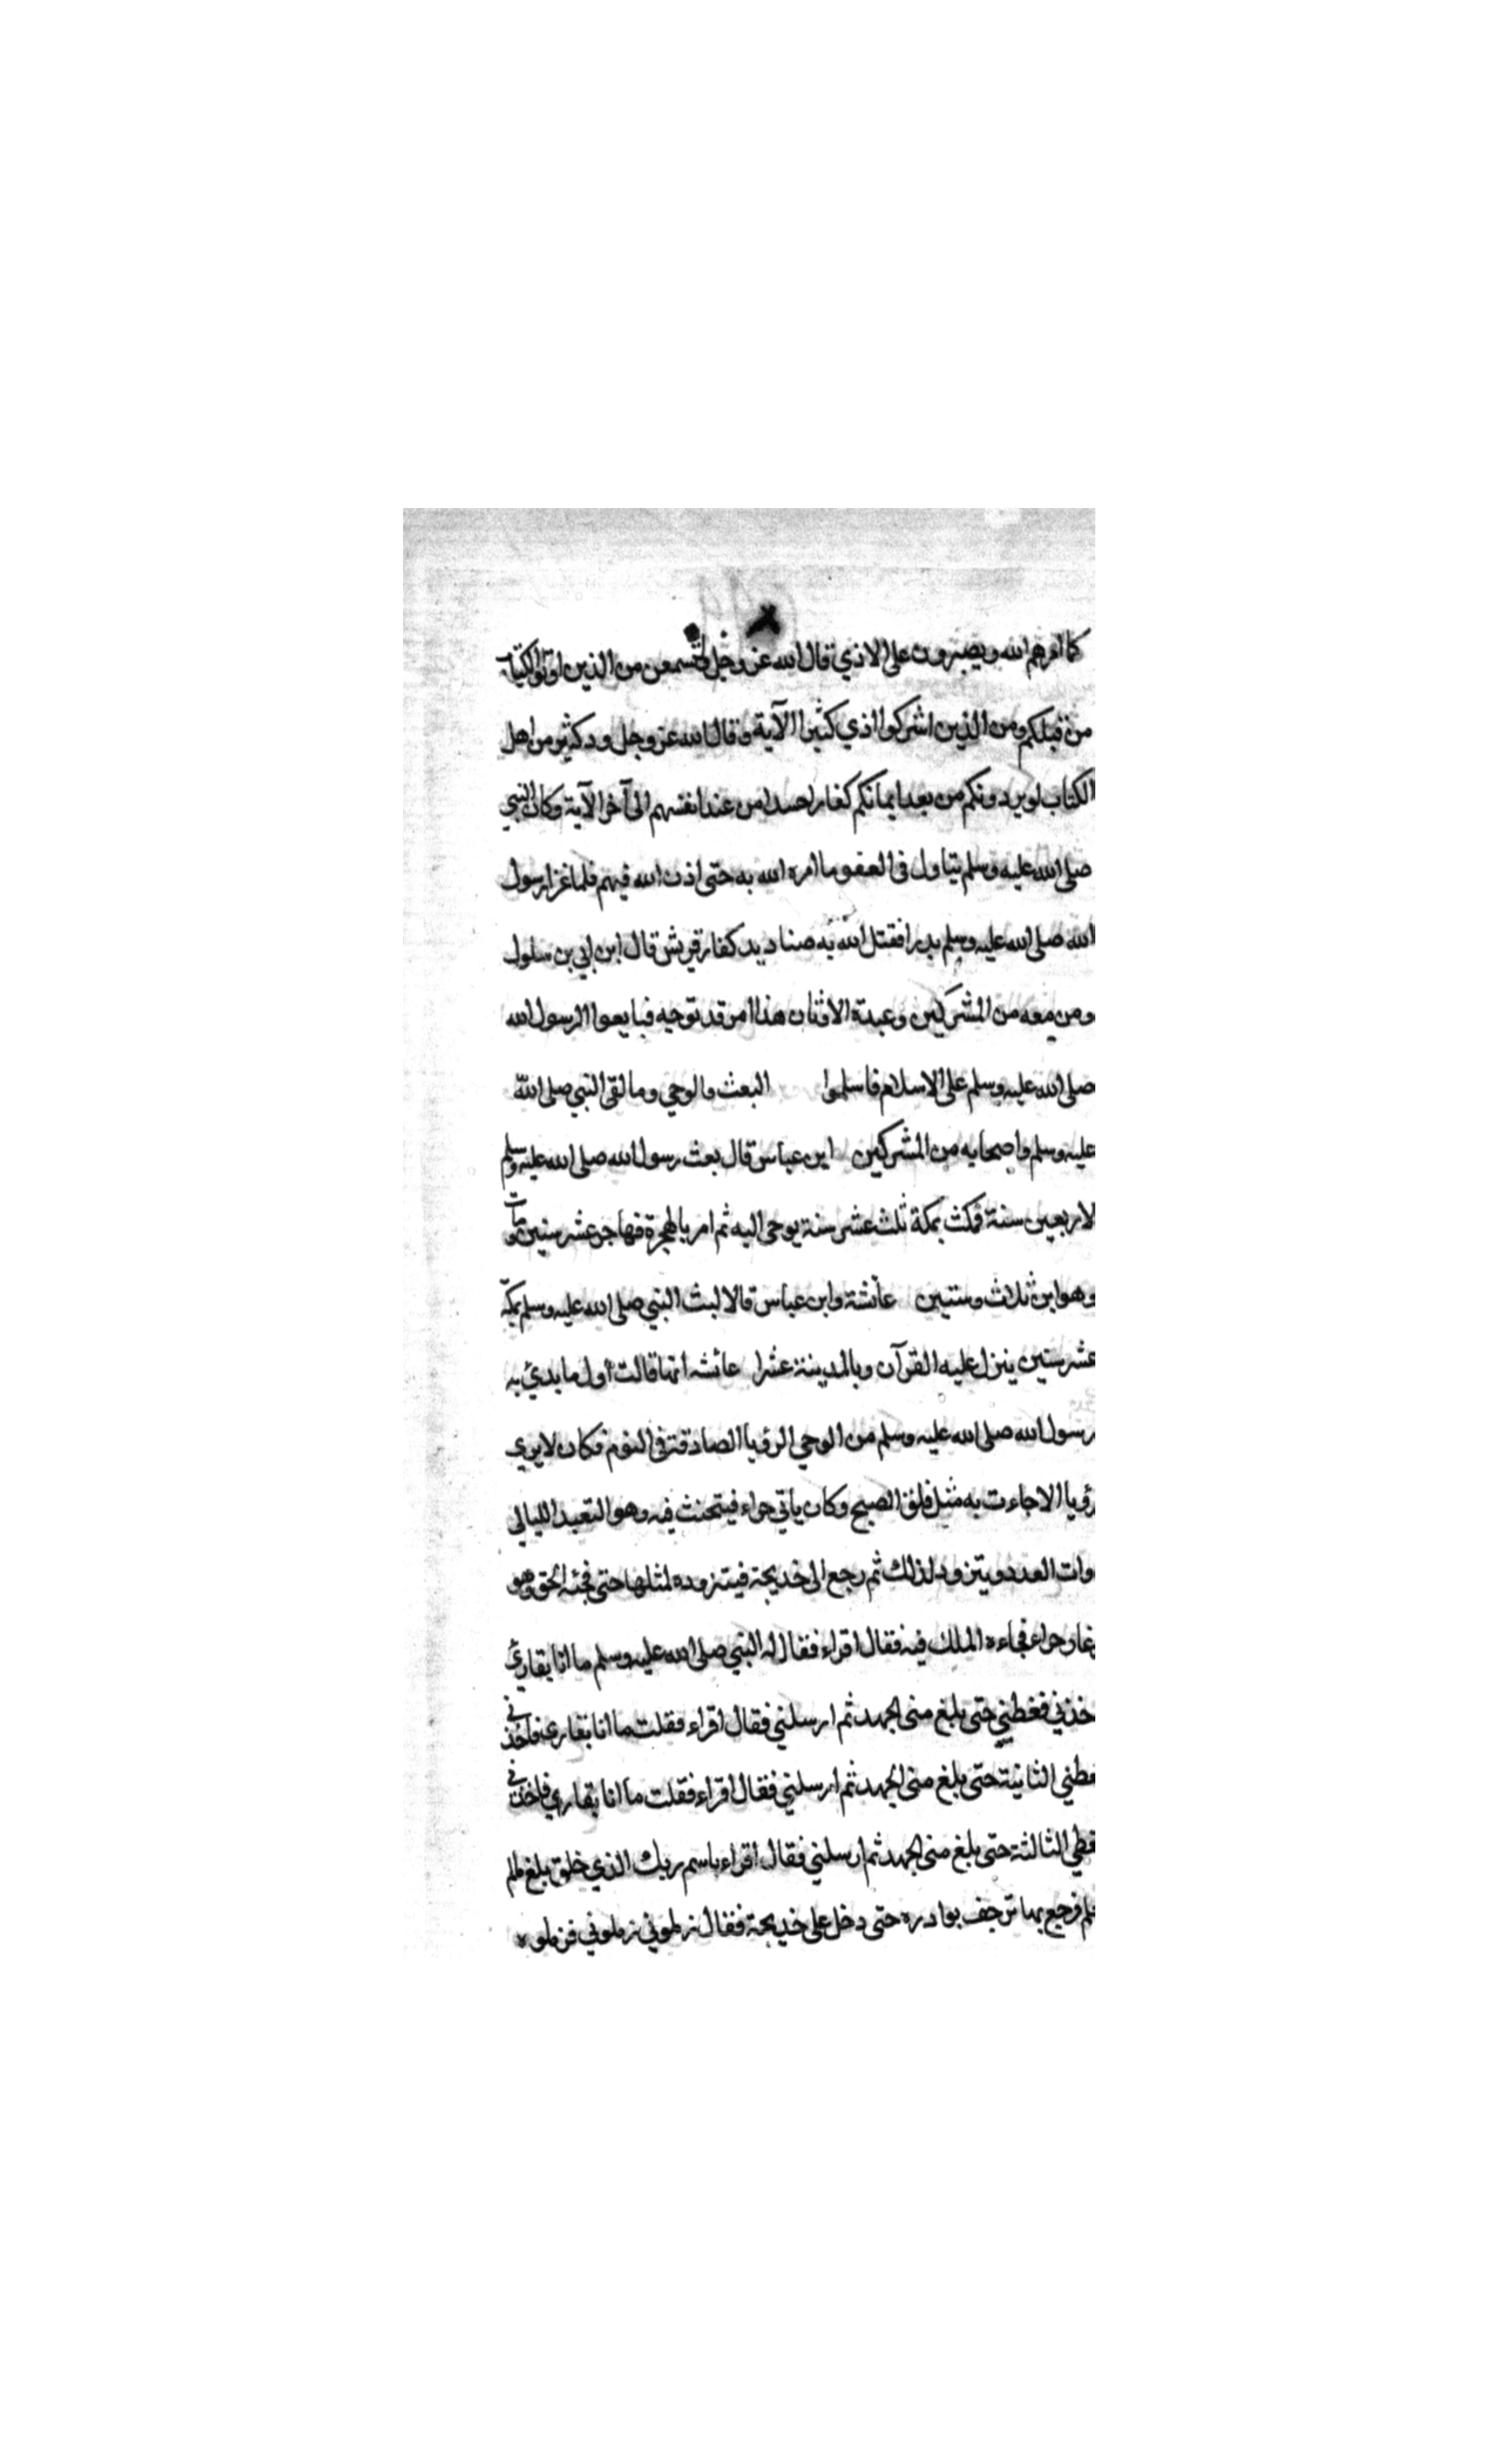 كما امرهم الله ويصبرون على الاذي قال الله عز وجل ولتسمعن من الذين اوتوا الكتاب
من قبلكم ومن الذين اشركوا اذي كثيرا الآية وقال الله عز وجل ود كثير من اهل
الكتاب لو يردونكم من بعد ايمانكم كفارا حسدا من عند انفسهم الى آخر الآية وكان النبي
صلى الله عليه وسلم يتاول فى العفو ما امره الله به حتى اذن الله فيهم فلما غزا رسول
الله صلى الله عليه وسلم بدرا فقتل الله به صناديد كفار قريش قال ابن ابي بن سلول
ومن معه من المشركين وعبدة الاوثان هذا امر قد توجه فبايعوا الرسول الله
صلى الله عليه وسلم على الاسلام فاسلموا البعث والوحي وما لقى النبي صلى الله
عليه وسلم واصحابه من المشركين ابن عباس قال بعث رسول الله صلى الله عليه وسلم
لاربعين سنة فمكث بمكة ثلث عشر سنة يوحى اليه ثم امر بالهجرة فهاجر عشر سنين ومات
وهو ابن ثلاث وستين عائشة وابن عباس قالا لبث النبي صلى الله عليه وسلم بمكة
عشر سنين ينزل عليه القرآن وبالمدينة عشرا عائشه انها قالت أول ما بدئ به
رسول الله صلى الله عليه وسلم من الوحي الرؤيا الصادقة فى النوم فكان لا يرى
رؤيا الا جاءت به مثل فلق الصبح وكان ياتي حراء فيتحنث فيه وهو التعبد الليالى
وات العدد ويتزود لذلك ثم رجع الى خديجة فيتزوده لمثلها حتى فجئه الحق وهو
غار حراء فجاءه الملك فيه فقال اقراء فقال له النبي صلى الله عليه وسلم ما انا بقارئ
خذني فغطني حتى بلغ منى الجهد ثم ارسلني فقال اقراء فقلت ما انا بقارى فاخذني
غطني الثانية حتى بلغ منى الجهد ثم ارسلني فقال اقراء فقلت ما انا بقاري فاخذني
غطي الثالثة حتى بلغ منى الجهد ثم ارسلني فقال اقراء باسم ربك الذي خلق بلغ مالم
يلم فرجع بها ترجف بوادره حتى دخل على خديجة فقال زملوني زملوني فزملوه